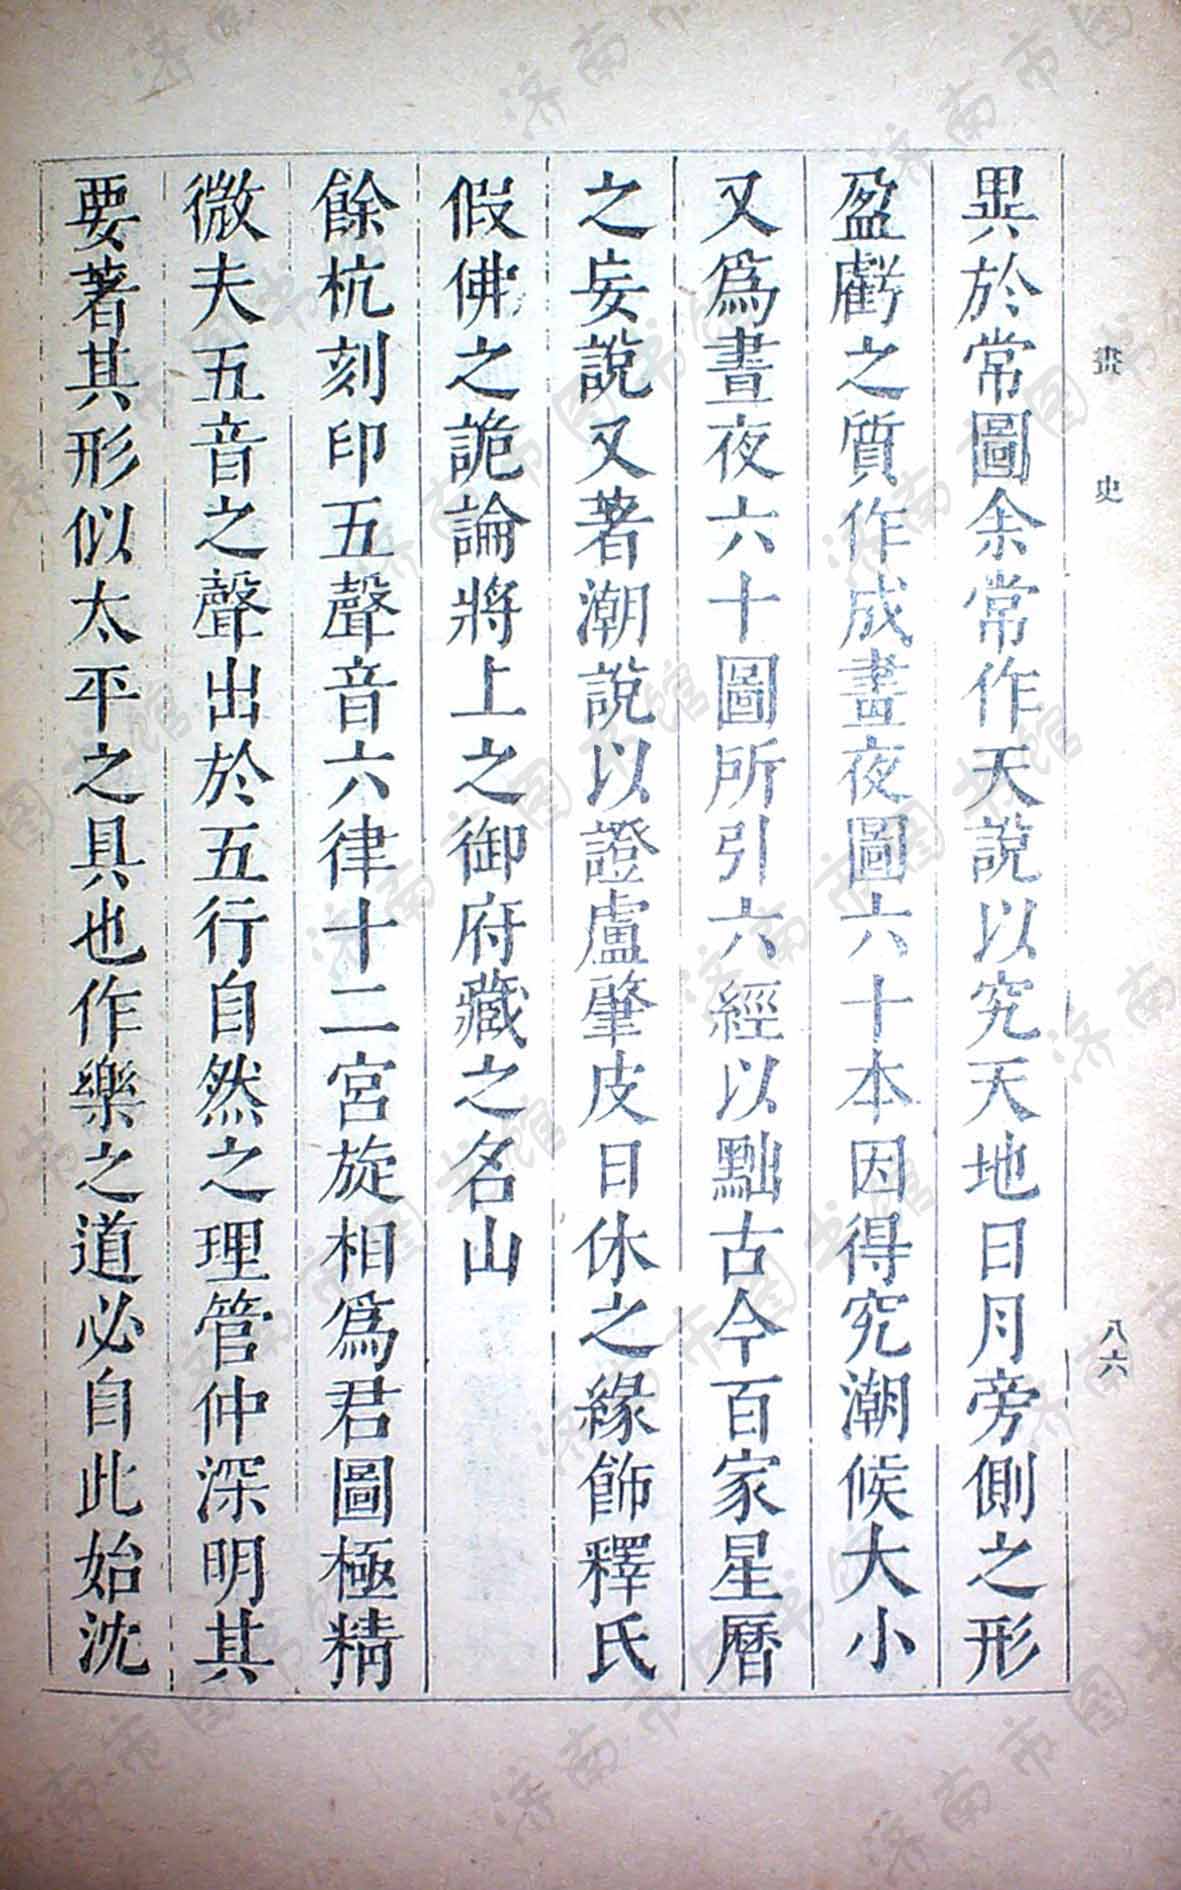 畫史
八六
異於常圖余常作天說以究天地日月旁側之形
盈虧之質作成晝夜圖六十本因得究潮候大小
又爲晝夜六十圖所引六經以黜古今百家星曆
之妄說又著潮說以證盧肇皮日休之緣飾釋氏
假佛之詭論將上之御府藏之名山
餘杭刻印五聲音六律十二宮旋相爲君圖極精
微夫五音之聲出於五行自然之理管仲深明其
要著其形似太平之具也作樂之道必自此始沈
济南市图书馆